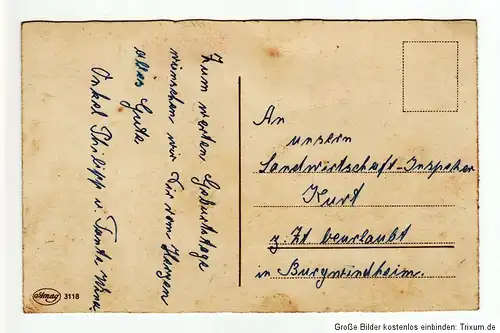 Zum werten Geburtstage
wünschen wir Dir vom Herzen
alles Gute
Onkel Philipp u. Tante
An
unsern
Landwirtschaft-Inspektor
Kurt
z. Zt beurlaubt
in Burgwindheim.
Amag 3118
Große Bilder kostenlos einbinden: Trixum.de